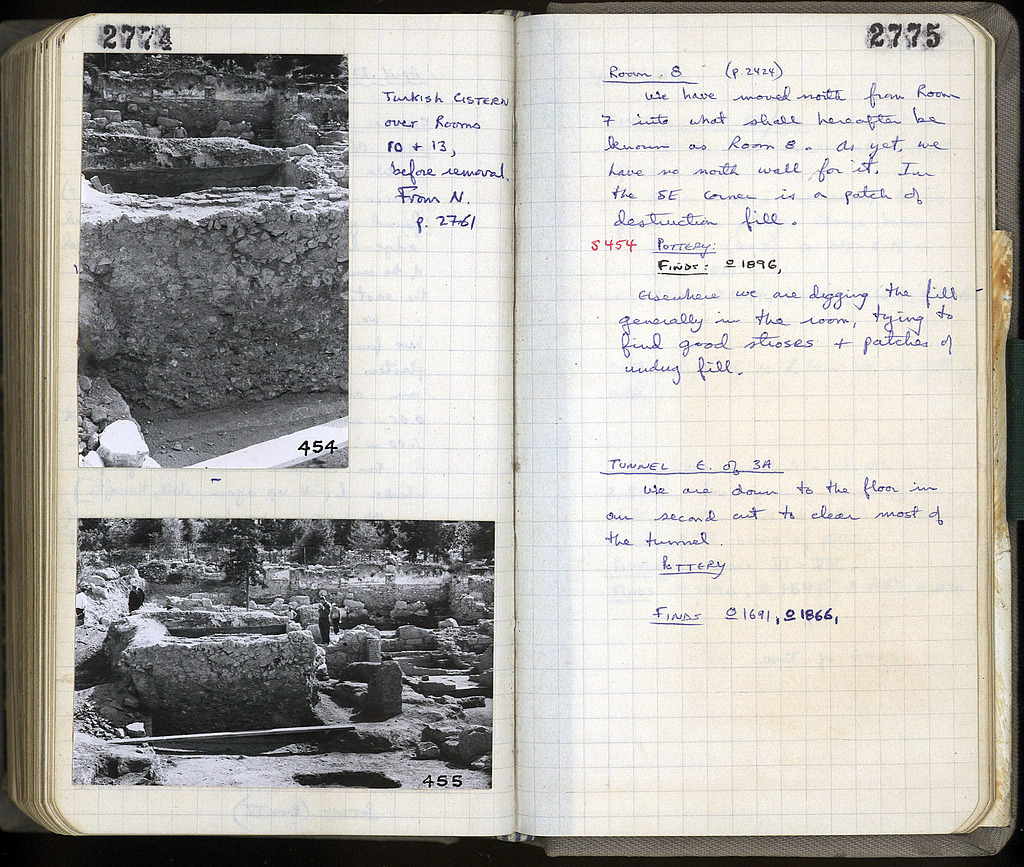 2774
Turkish CISTERN
over Rooms
10 + 13,
before removal.
From N.
p. 2761
454
455
2775
Room 8 (p. 2424)
We have moved north from Room
7 into what shall hereafter be
known as Room 8. As yet, we
have no north wall for it. In
the SE corner is a patch of
destruction fill.
S454 POTTERY:
FINDS: O 1896,
Elsewhere we are digging the fill
generally in the room, trying to
find good stroses + patches of
undug fill.
TUNNEL E. of 3A
We are down to the floor in
our second cut to clear most of
the tunnel.
POTTERY
FINDS O 1691, O 1866,